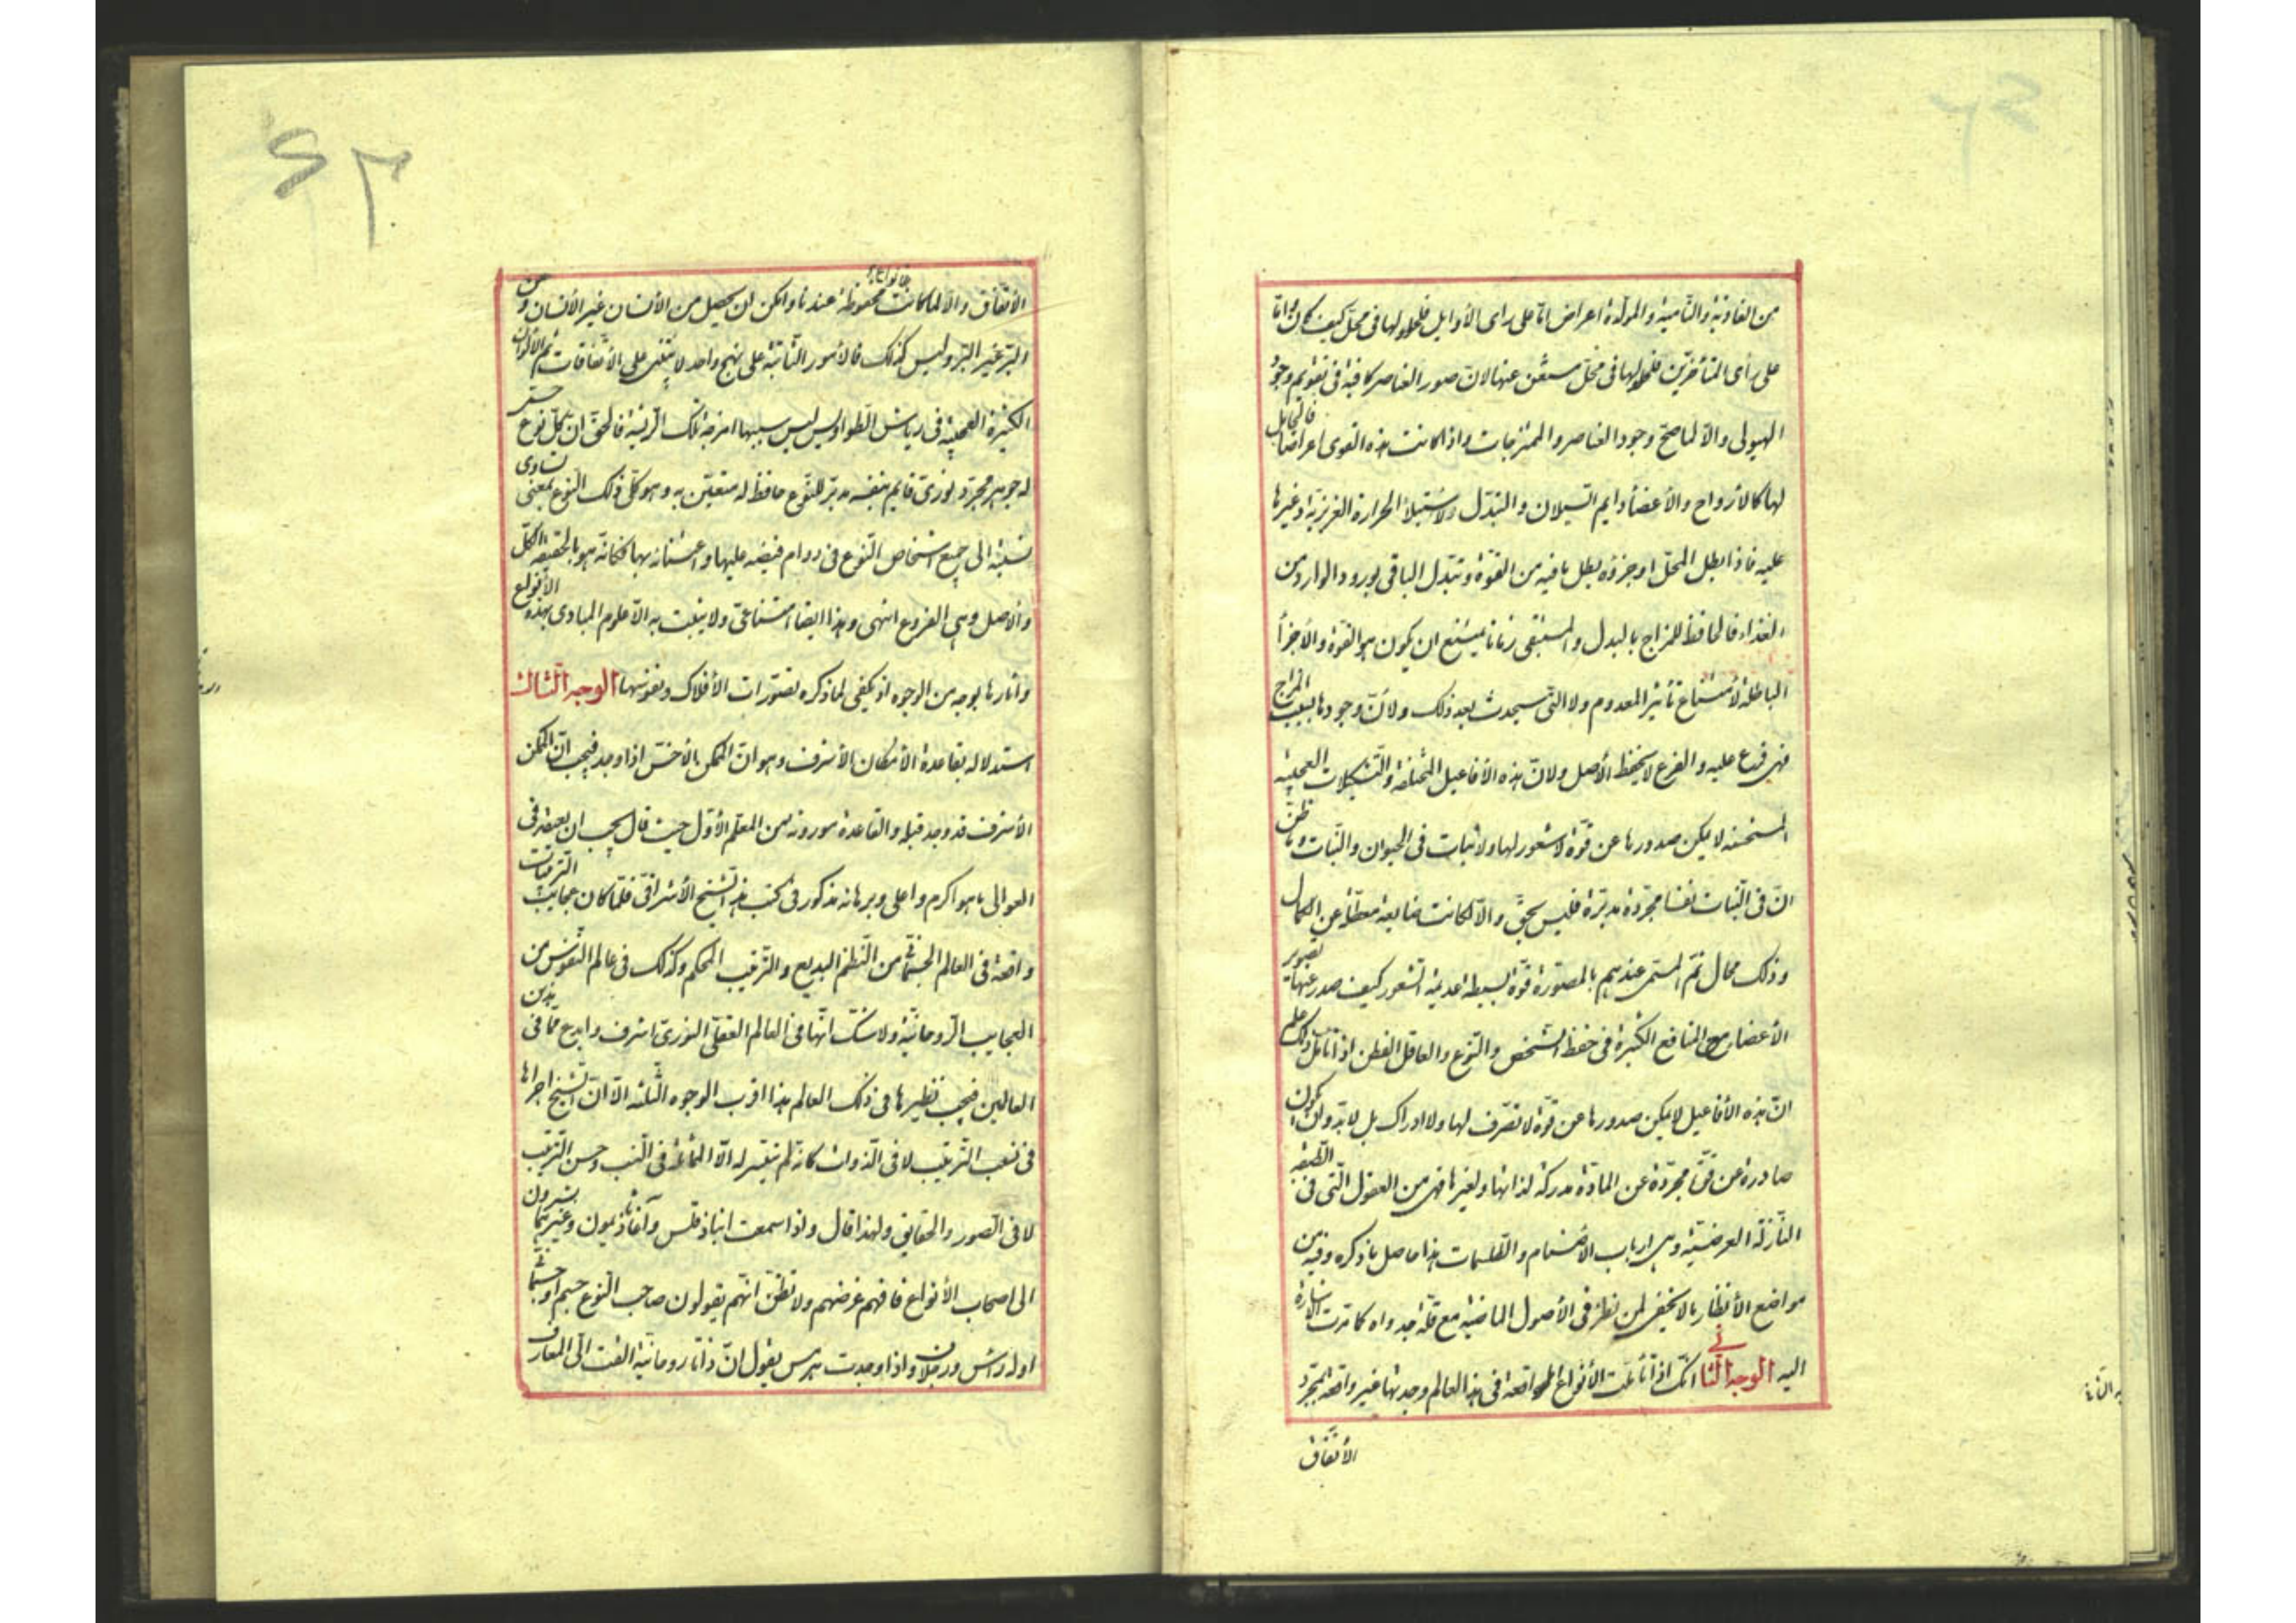 من الغاذية والنامية والمولدة اعراض اما على راى الأوايل فلحلولها فى محل كيف كان واما
على رأى المتأخرين فلحلولها فى محل مستغن عنها لان صور العناصر كافية فى تقويم وجود
الهيولى والا لما صح وجود العناصر والممتزجات واذا كانت هذه القوى اعراضا فالحامل
لها كالأرواح والأعضأ دايم السيلان والتبدل ولاستيلأ الحرارة الغريزية وغيرها
عليه فاذا بطل المحل او جزؤه بطل ما فيه من القوة وتبدل الباقى بورود الوارد من
الغذاء فالحافظ للمزاج بالبدل والمستبقى زمانا يمتنع ان يكون هو القوة والأجزأ
الباطلة لأمتناع تأثير المعدوم ولا التى سيحدث بعد ذلك ولأن وجودها بسبب المزاج
فهى فرع عليه والفرع لا يحفظ الأصل ولان هذه الأفاعيل المختلفة والتشكيلات العجيبة
المستحسنه لا يمكن صدورها عن قوة لا شعور لها ولا ثبات فى الحيوان والنبات وما ظن
ان فى النبات نفسا مجردة مدبرة فليس بحق والا لكانت ضايعة معطلة عن الكمال
وذلك محال ثم المسمى عندهم بالمصورة قوة بسيطه عديمة الشعور كيف صدر عنها تصوير
الأعضاء مع المنافع الكثيرة فى حفظ الشخص والنوع والعاقل الفطن اذا تأمل ذلك علم
ان هذه الأفاعيل لا يمكن صدورها عن قوة لا تصرف لها ولا ادراك بل لا بد وان يكون
صادرة عن قوة مجردة عن المادة مدركة لذاتها ولغيرها فهى من العقول التى فى الطبقه
النازلة العرضية وهى ارباب الأصنام والطلسمات هذا حاصل ما ذكره وفيه من
مواضع الأنظار ما لا يخفى لمن نظر فى الأصول الماضية مع قلة جدواه كما مرت الاشارة
اليه الوجه الثانى انك اذا تأملت الأنواع الواقعة فى هذا العالم وجدتها غير واقعة بمجرد
الأتفاق
٤٣
الأتفاق والا لما كانت انواعها محفوظة عندنا وامكن ان يحصل من الأنسان غير الأنسان ومن
البر غير البر وليس كذلك فالأمور الثابتة على نهج واحد لا يبتنى على الأتفاقات ثم الألوان
الكثيرة العجيبة فى رياش الطواويس ليس سببها امزجة تلك الريشة فالحق ان لكل نوع حسى
له جوهر مجرد نورى قايم بنفسه مدبر للنوع حافظ له متعين به وهو كلى ذلك النوع بمعنى تساوى
نسبة الى جميع اشخاص النوع فى دوام فيضه عليها واعتنائه بها فكانه هو بالحقيقة الكل
والأصل وهى الفروع انتهى وهذا ايضا اقناعى ولا يثبت به الا علوم المبادى بهذه الأنواع
وآثارها بوجه من الوجوه اذ يكفى لما ذكره تصورات الأفلاك ونفوسها الوجه الثالث
استدلاله بقاعدة الأمكان الأشرف وهو ان الممكن الأخس اذا وجد فيجب ان الممكن
الأشرف قد وجد قبله والقاعدة موروثه من المعلم الأول حيث قال يجب ان يعتقد فى
العوالى ما هو اكرم واعلى وبرهانه مذكور فى كتب هذا الشيخ الأشراقى فلما كان عجايب الترتيبات
واقعة فى العالم الجسمانى من النظم البديع والترتيب المحكم وكذلك فى عالم النفوس من
العجايب الروحانية ولا شك انها فى العالم العقلى النورى اشرف وابدع مما فى هذين
العالمين فيجب نظيرها فى ذلك العالم هذا اقرب الوجوه الثلثه الا ان الشيخ اجراها
فى نسب الترتيب لا فى الذوات كانه لم يتيسر له الا المماثلة فى النسب وحسن الترتيب
لا فى الصور والحقايق ولهذا قال واذا سمعت انباذقلس وآغاثاذيمون وغيرهما يشيرون
الى اصحاب الأنواع فافهم غرضهم ولا تظنن انهم يقولون صاحب النوع جسم او جسمانى
اوله راس ورجلان واذا وجدت هرمس يقول ان ذاتا روحانية القت الى المعارف